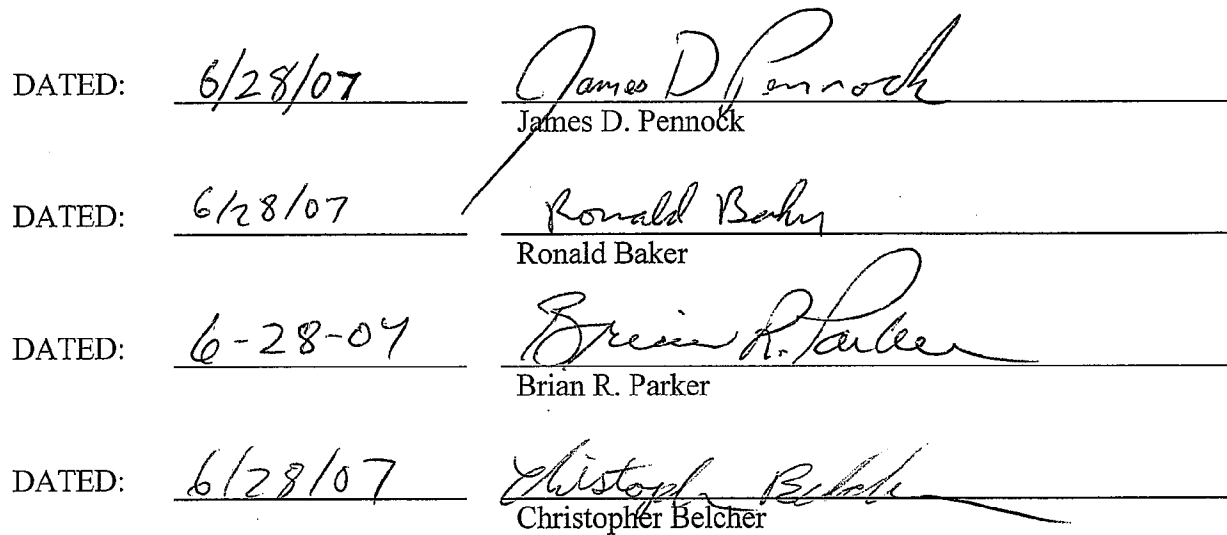 DATED: 6/28/07 James D Pennock
James D. Pennock
DATED: 6/28/07 Ronald Baker
Ronald Baker
DATED: 6-28-07 Brian R. Parker
Brian R. Parker
DATED: 6/28/07 Christopher Belcher
Christopher Belcher